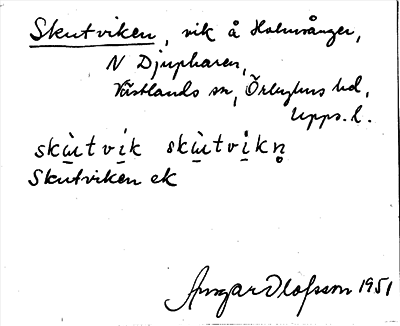 Skutviken, vik å Holmsånger,
N Djupharen,
Västlands sn, Örbyhus hd,
Upps. l.
skùtvík skùtvíkn̥
Skutviken ek
Ansgar Olofsson 1951